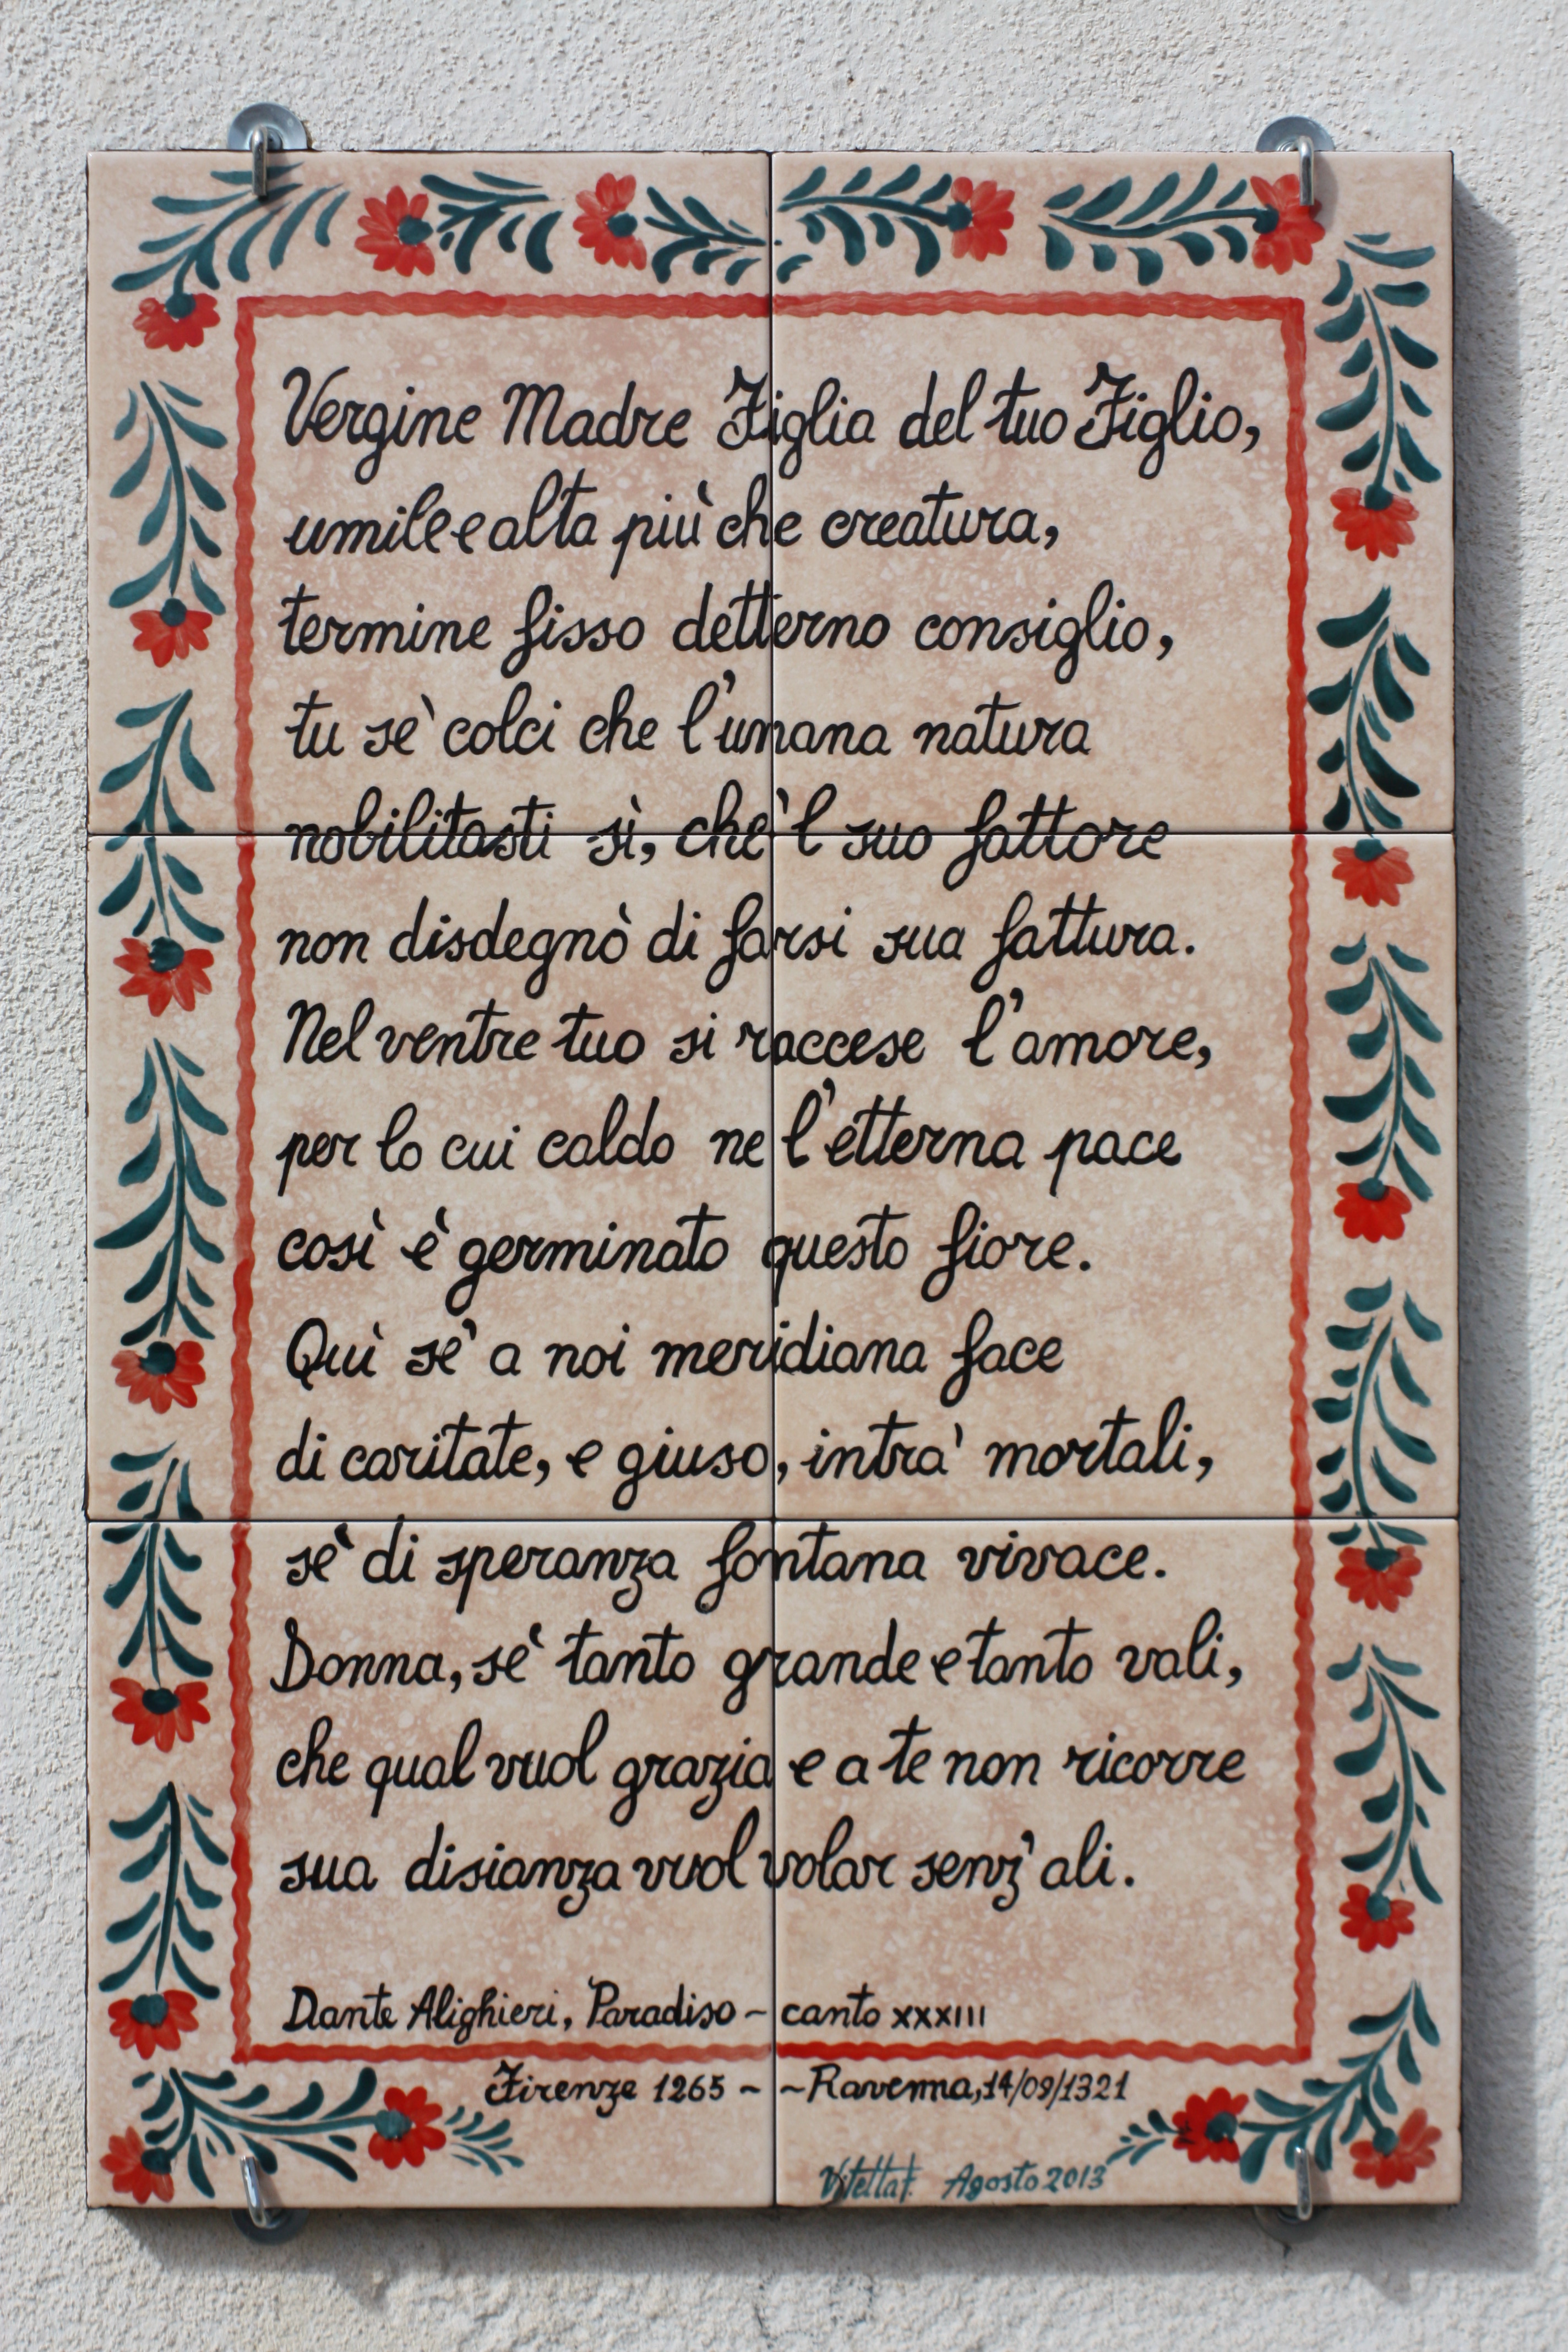 Vergine Madre Figlia del tuo Figlio,
umile e alta più che creatura,
termine fisso detterno consiglio,
tu sè colci che l'umana natura
nobilitasti sì, che 'l suo fattore
non disdegnò di farsi sua fattura.
Nel ventre tuo si raccese l'amore,
per lo cui caldo ne l'etterna pace
così è germinato questo fiore.
Quì se' a noi meridiana face
di caritate, e giuso, intra' mortali,
sè di speranza fontana vivace.
Donna, sè tanto grande e tanto vali,
che qual vuol grazia e a te non ricorre
sua disianza vuol volar senz'ali.
Dante Alighieri, Paradiso - canto XXXIII
Firenze 1265 ~ ~Ravenna, 14/09/1321
Vitetta f. Agosto 2013